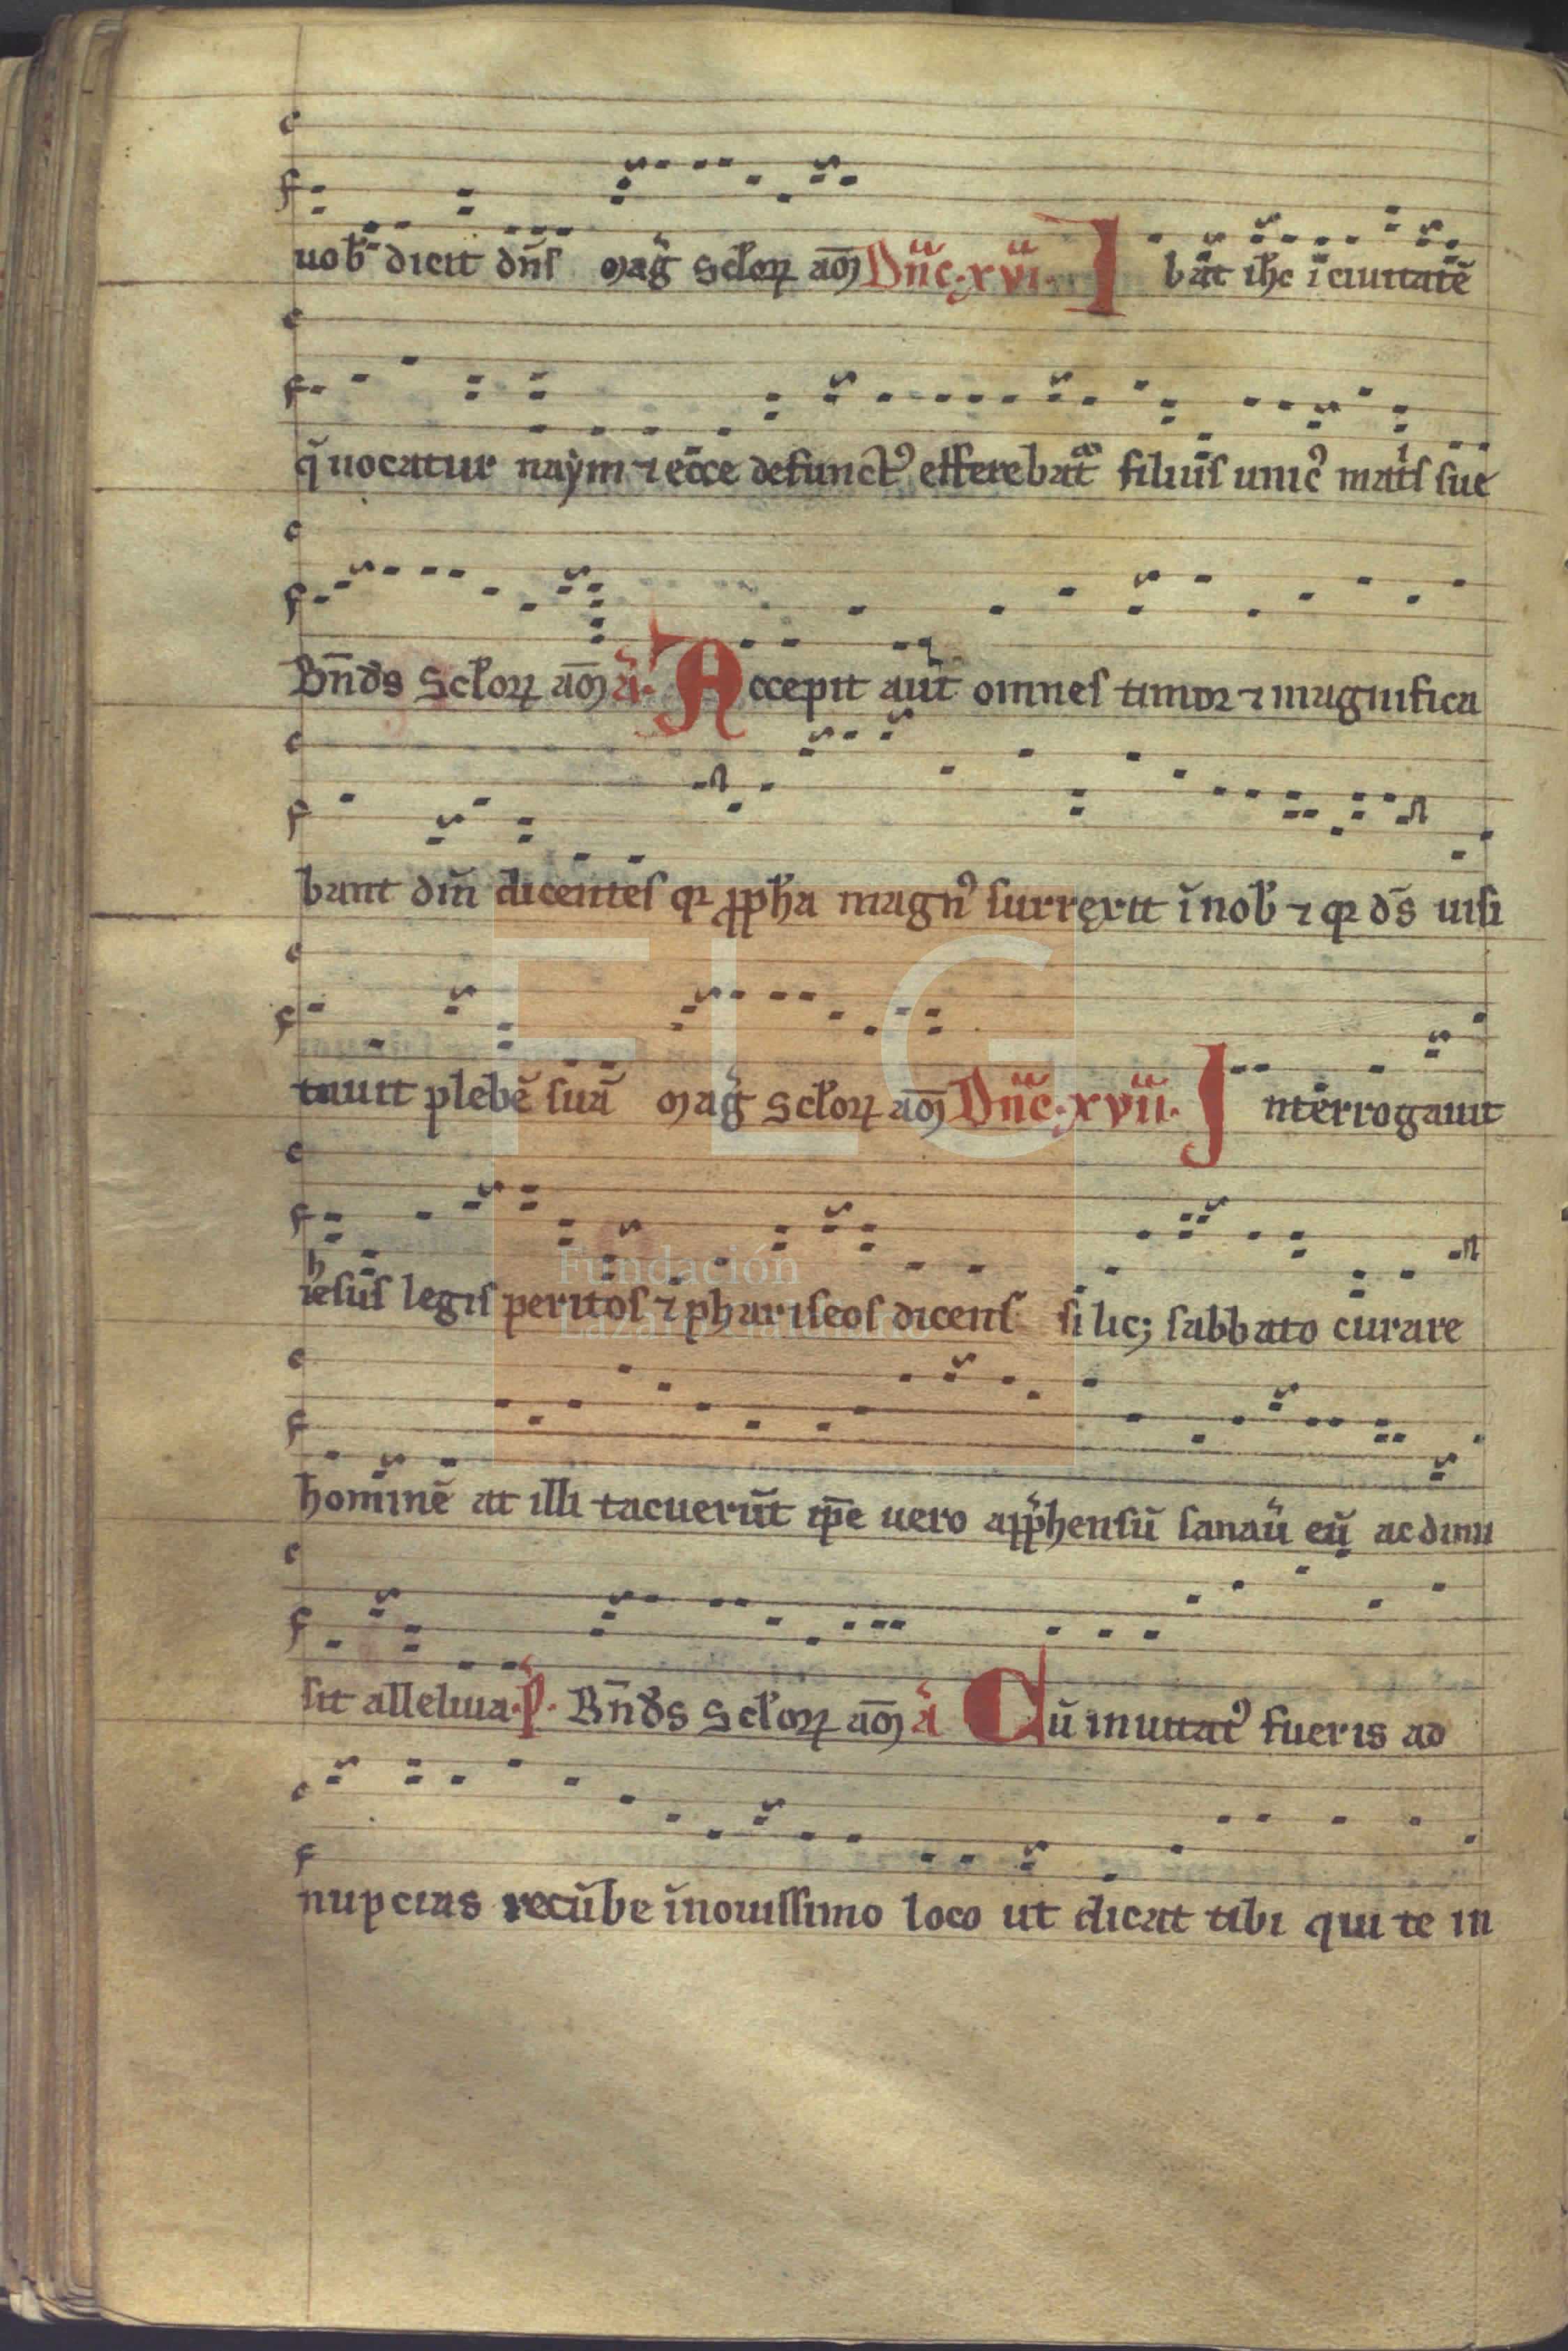 uob̄ dicit dn̄s mag̃ scl̄oꝝ am̄ Dn̄c·xvi· I bat ih̄c ī ciuitatē
q̄ uocatur naẏm ⁊ ecce defunctꝰ efferebat᷑ filius unicꝰ mat̓s sue
Bn̄ds scl̄oꝝ am̄ a̓· Accepit aut̄ omnes timor ⁊ magnifica
bant dm̄ dicentes qꝛ ꝓph̄a magnꝰ surrexit ī nob̄ ⁊ qꝛ ds̄ uisi
tauit plebē suā mag̃ scl̄oꝝ am̄ Dn̄c·xvii· Interrogauit
ih̄esus legis peritos ⁊ phariseos dicens si lic; sabbato curare
hominē at illi tacuerūt ip̄e uero app̄hensū sanau̓ eū ac dimi
sit alleluia·p̓· Bn̄ds scl̄oꝝ am̄ a̓ Cū inuitatꝰ fueris ad
nupcias recūbe ī nouissimo loco ut dicat tibi qui te in
FLG
Fundación
Lázaro Galdiano